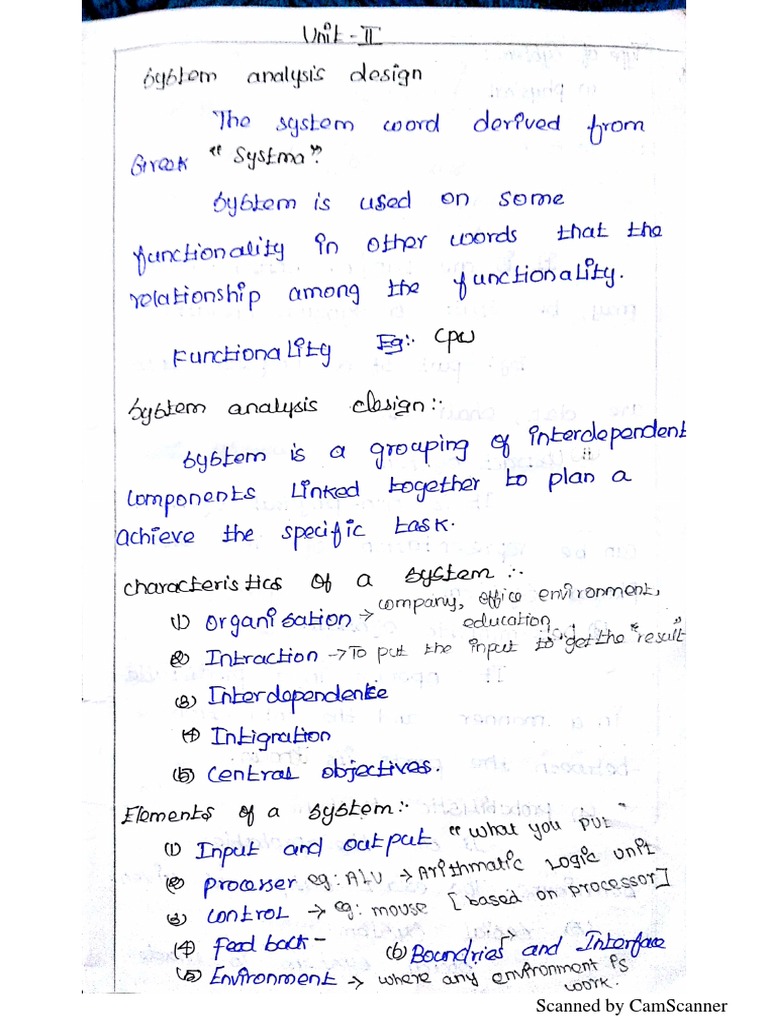 Unit - II
System analysis design
The system word derived from
Greek "Systma".
System is used on some
functionality in other words that the
relationship among the functionality.
Functionality Eg:- CPU
System analysis design:-
System is a grouping of interdependent
components linked together to plan a
achieve the specific task.
characteristics of a system :-
(1) organisation → company, office environment,
education
(2) Intraction → To put the input to get the "result"
(3) Interdependence
(4) Intigration
(5) central objectives.
Elements of a system:-
(1) Input and output "what you put"
(2) processer eg: ALU → Arithmatic Logic unit
(3) control → eg: mouse [based on processor]
(4) Feed back - (6) Boundries and Interface
(5) Environment → where any environment is
work.
Scanned by CamScanner